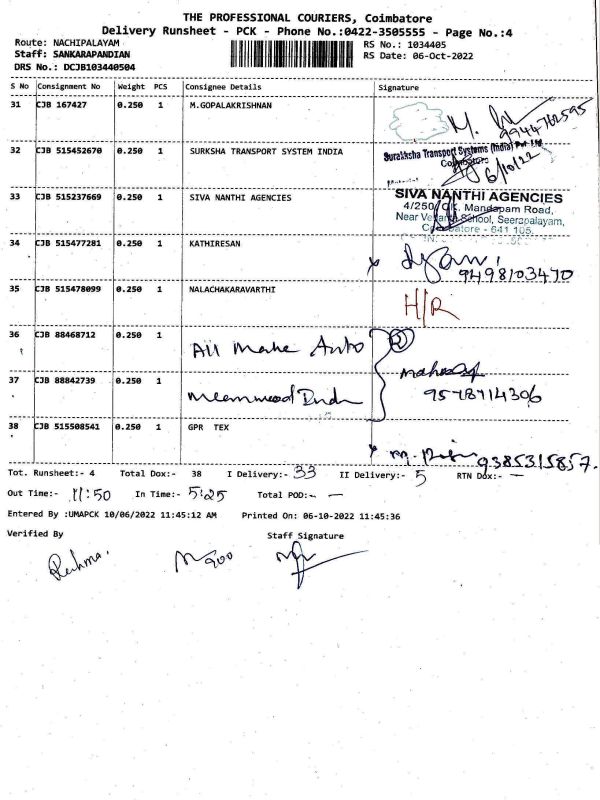 THE PROFESSIONAL COURIERS, Coimbatore
Delivery Runsheet - PCK - Phone No.:0422-3505555 - Page No.:4
Route: NACHIPALAYAM
Staff: SANKARAPANDIAN
DRS No.: DCJB103440504
RS No.: 1034405
RS Date: 06-Oct-2022
S No Consignment No Weight PCS Consignee Details Signature
31 CJB 167427 0.250 1 M.GOPALAKRISHNAN
9944762595
32 CJB 515452670 0.250 1 SURKSHA TRANSPORT SYSTEM INDIA
Surakksha Transport Systems (India) Pvt. Ltd
Coimbatore
6/10/22
33 CJB 515237669 0.250 1 SIVA NANTHI AGENCIES
SIVA NANTHI AGENCIES
4/250 Mandapam Road,
Near School, Seerapalayam,
Coimbatore - 641 105.
34 CJB 515477281 0.250 1 KATHIRESAN
9498103470
35 CJB 515478099 0.250 1 NALACHAKARAVARTHI
H/R
36 CJB 88468712 0.250 1 All Make Auto
37 CJB 88842739 0.250 1
9578714306
38 CJB 515508541 0.250 1 GPR TEX
9385315857.
Tot. Runsheet:- 4 Total Dox:- 38 I Delivery:- 33 II Delivery:- 5 RTN Dox:- —
Out Time:- 11:50 In Time:- 5:25 Total POD:- —
Entered By :UMAPCK 10/06/2022 11:45:12 AM Printed On: 06-10-2022 11:45:36
Verified By Staff Signature